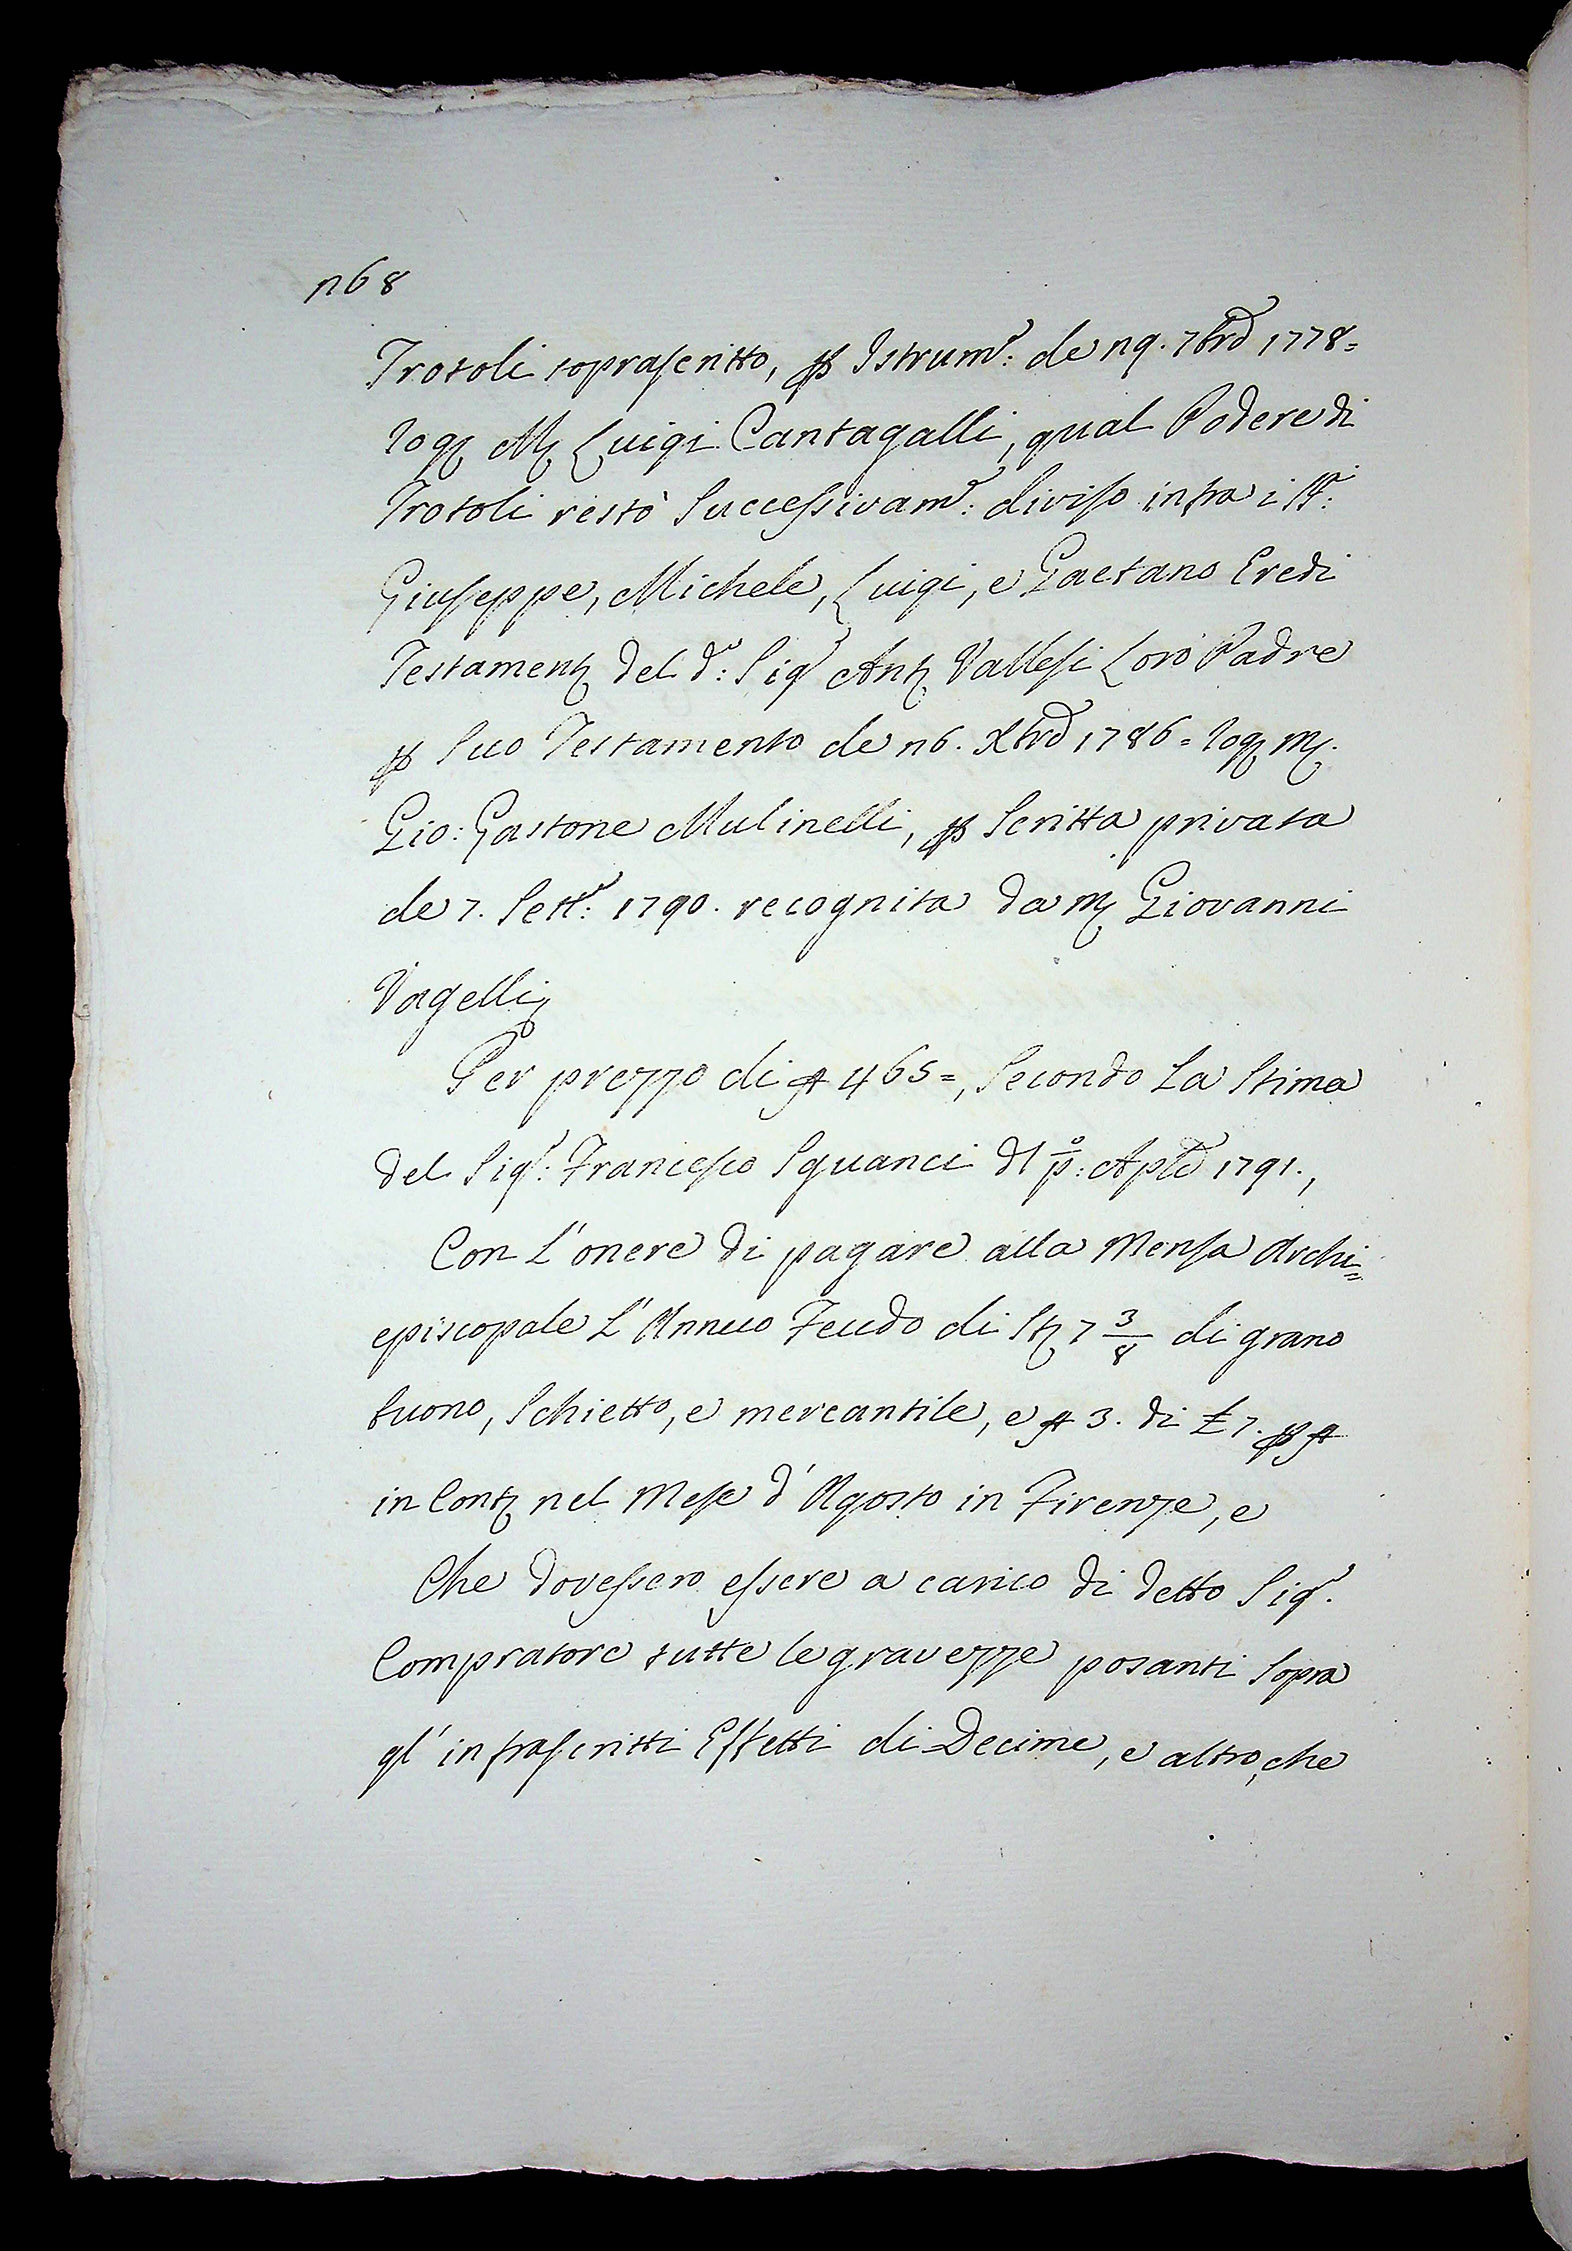 168
Trotoli soprascritto, ꝑ Istrum.º: de 19. 7bre 1778=
Rog. M. Luigi Cantagalli, qual Podere di
Trotoli restò Successivam.e: diviso infra i SS.ri:
Giuseppe, Michele, Luigi, e Gaetano Eredi
Testament. del d.º: Sig.r Ant. Vallesi Loro Padre
ꝑ Suo Testamento de 16. Xbre 1786= Rog. M.
Gio: Gastone Mulinelli, ꝑ Scritta privata
de 7. Sett.e: 1790. recognita da M. Giovanni
Vagelli,
Per prezzo di ∇ 465=, Secondo La Stima
del Sig.r: Francesco Sguanci dl p.º: Aple 1791.,
Con L'onere di pagare alla Mensa Archi=
episcopale L'Annuo Feudo di St. 7 3/8 di grano
buono, Schietto, e mercantile, e ∇ 3. di £ 7. ꝑ ∇
in Cont. nel Mese d'Agosto in Firenze, e
Che dovessero essere a carico di detto Sig.r
Compratore tutte le gravezze posanti Sopra
gl'infrascritti Effetti di Decime, e altro, che